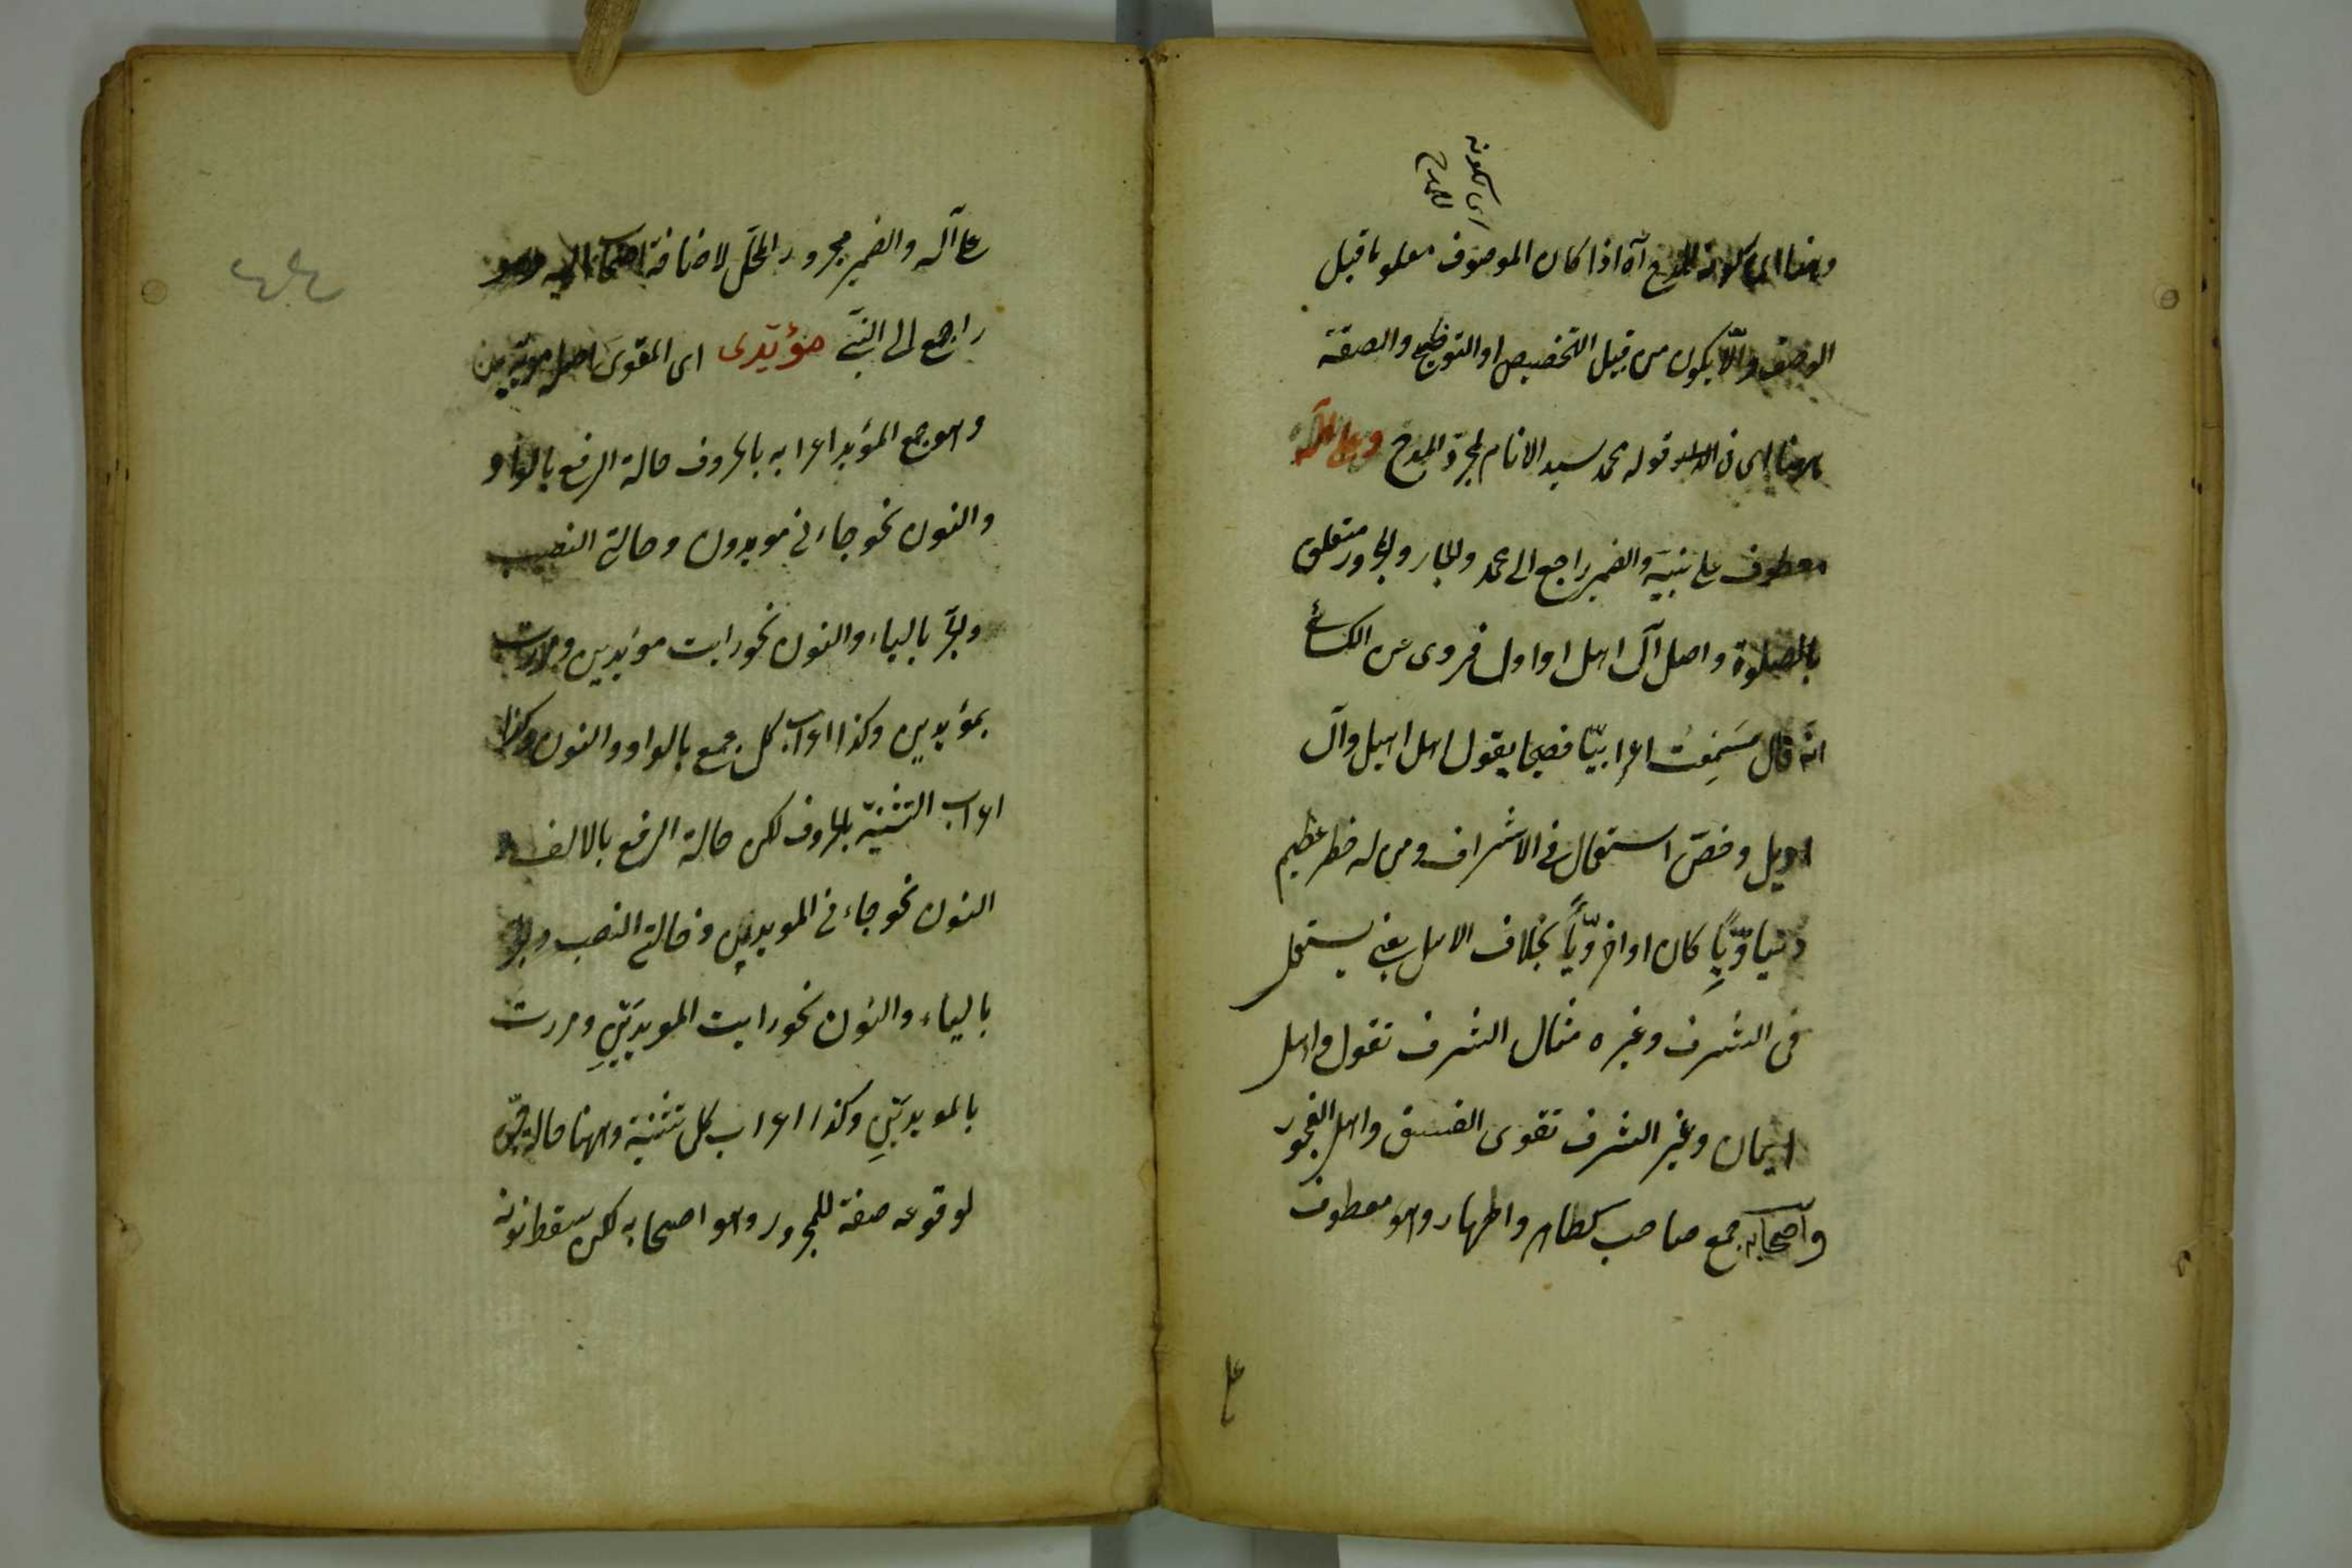 اى كونه
للمدح
وهذا اى كونه للمدح آه اذا كان الموصوف معلوما قبل
الوصف والّا يكون من قبيل التخصيص او التوضيح والصفة
ههنا اى فى قوله محمد سيد الانام لمجرّد المدح وعلى آله
معطوف على نبيّه والضمير راجع الى محمد والجار والمجرور متعلق
بالصلوة واصل آل اهل او اول فروى عن الكسائى
انّه قال سَمِعْتُ اعرابيّا فصيحا يقول اهل اهيل وآل
اويل وخصّ استعمال فى الاشراف ومن له خطر عظيم
دنياوّيًا كان او اخروّيًا بخلاف الاهل يعنى يستعمل
فى الشرف وغيره مثال الشرف تقول واهل
ايمان وغير الشرف تقوى الفسق واهل الفجور
وآصحابه جمع صاحب كطاهر واطهار وهو معطوف
على
على آله والضمير مجرور المحلّ لاضافة اصحاب اليه وهو
راجع الى النبىّ مؤيّدى اى المقوّى اصله مويدين
وهو جمع المؤيد اعرابه بالحروف حالة الرفع بالواو
والنون نحو جاءنى مويدون وحالتى النصب
والجرّ بالياء والنون نحو رايت مؤيدين ومررت
بمؤيدين وكذا اعراب كل جمع بالواو والنون وكذا
اعراب التثنيّة بالحروف لكن حالة الرفع بالالف و
النون نحو جاءنى المويدان وحالتى النصب والجرّ
بالياء والنون نحو رايت المويدَيْنِ ومررت
بالمويدَيْنِ وكذا اعراب كل تثنية وههنا حالة جرّ
لوقوعه صفة للمجرور وهو اصحابه لكن سقط نونه
٤٤